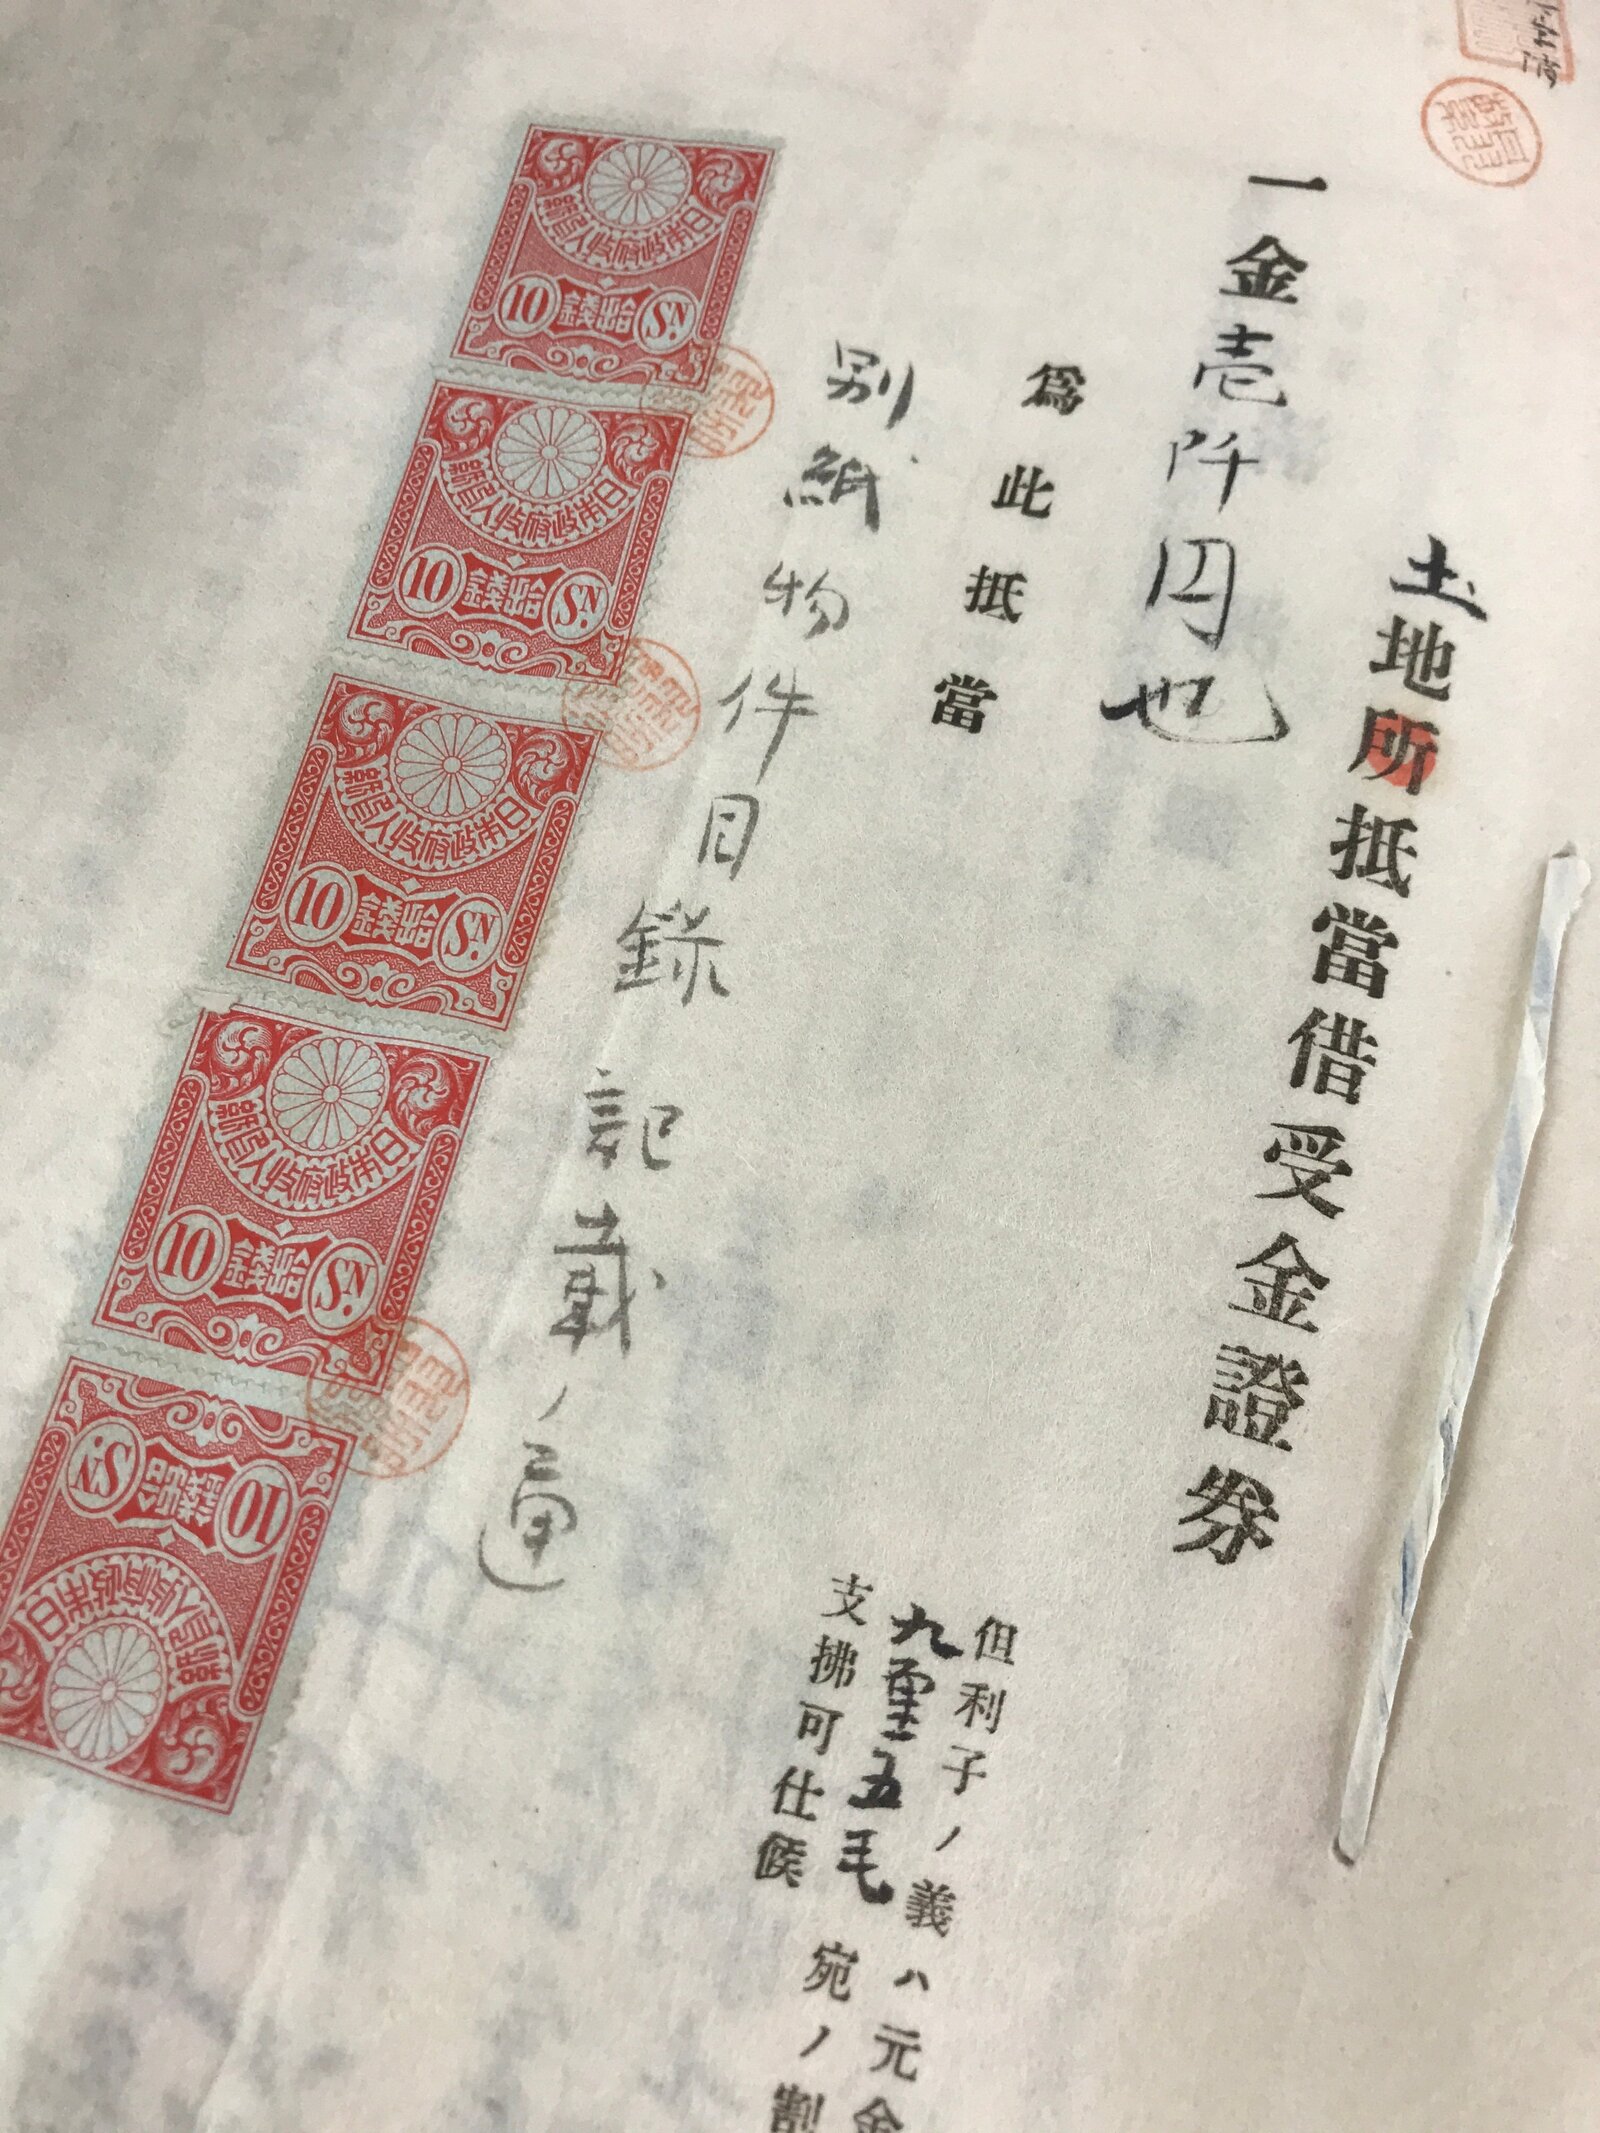 土地所抵當借受金證券
一金壱阡円也
爲此抵當
但利子ノ義ハ元金
九厘五毛宛ノ割
支拂可仕候
別紙物件目錄記載ノ通
日本政府收入印紙
10 拾錢 SN.
日本政府收入印紙
10 拾錢 SN.
日本政府收入印紙
10 拾錢 SN.
日本政府收入印紙
10 拾錢 SN.
日本政府收入印紙
10 拾錢 SN.